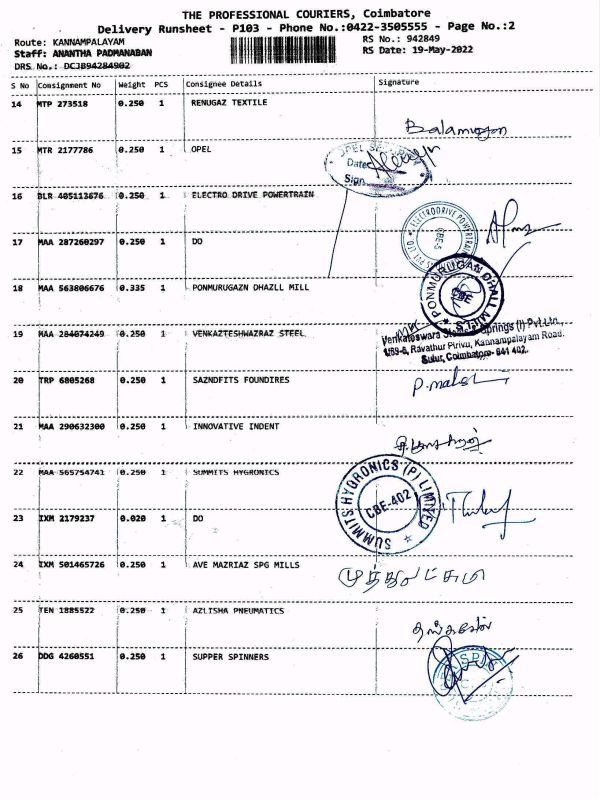 THE PROFESSIONAL COURIERS, Coimbatore
Delivery Runsheet - P103 - Phone No.:0422-3505555 - Page No.:2
Route: KANNAMPALAYAM RS No.: 942849
Staff: ANANTHA PADMANABAN RS Date: 19-May-2022
DRS No.: DCJB94284902
S No Consignment No Weight PCS Consignee Details Signature
14 MTP 273518 0.250 1 RENUGAZ TEXTILE
Balamurugan
15 MTR 2177786 0.250 1 OPEL
OPEL
Date
Sign
16 BLR 405113676 0.250 1 ELECTRO DRIVE POWERTRAIN
ELECTRODRIVE POWERTRAIN
CBE-5
17 MAA 287260297 0.250 1 DO
18 MAA 563806676 0.335 1 PONMURUGAZN DHAZLL MILL
PONMURUGAN DHALL MILL
CBE
19 MAA 284074249 0.250 1 VENKAZTESHWAZRAZ STEEL
Venkateswara Steels & Springs (I) Pvt.Ltd.,
1/89-6, Ravathur Pirivu, Kannampalayam Road.
Sulur, Coimbatore- 641 402.
20 TRP 6805268 0.250 1 SAZNDFITS FOUNDIRES
21 MAA 290632300 0.250 1 INNOVATIVE INDENT
22 MAA 565754741 0.250 1 SUMMITS HYGRONICS
SUMMITS HYGRONICS (P) LIMITED
CBE-402
23 IXM 2179237 0.020 1 DO
24 IXM 501465726 0.250 1 AVE MAZRIAZ SPG MILLS
முத்துலட்சுமி
25 TEN 1885522 0.250 1 AZLISHA PNEUMATICS
தங்கவேல்
26 DDG 4260551 0.250 1 SUPPER SPINNERS